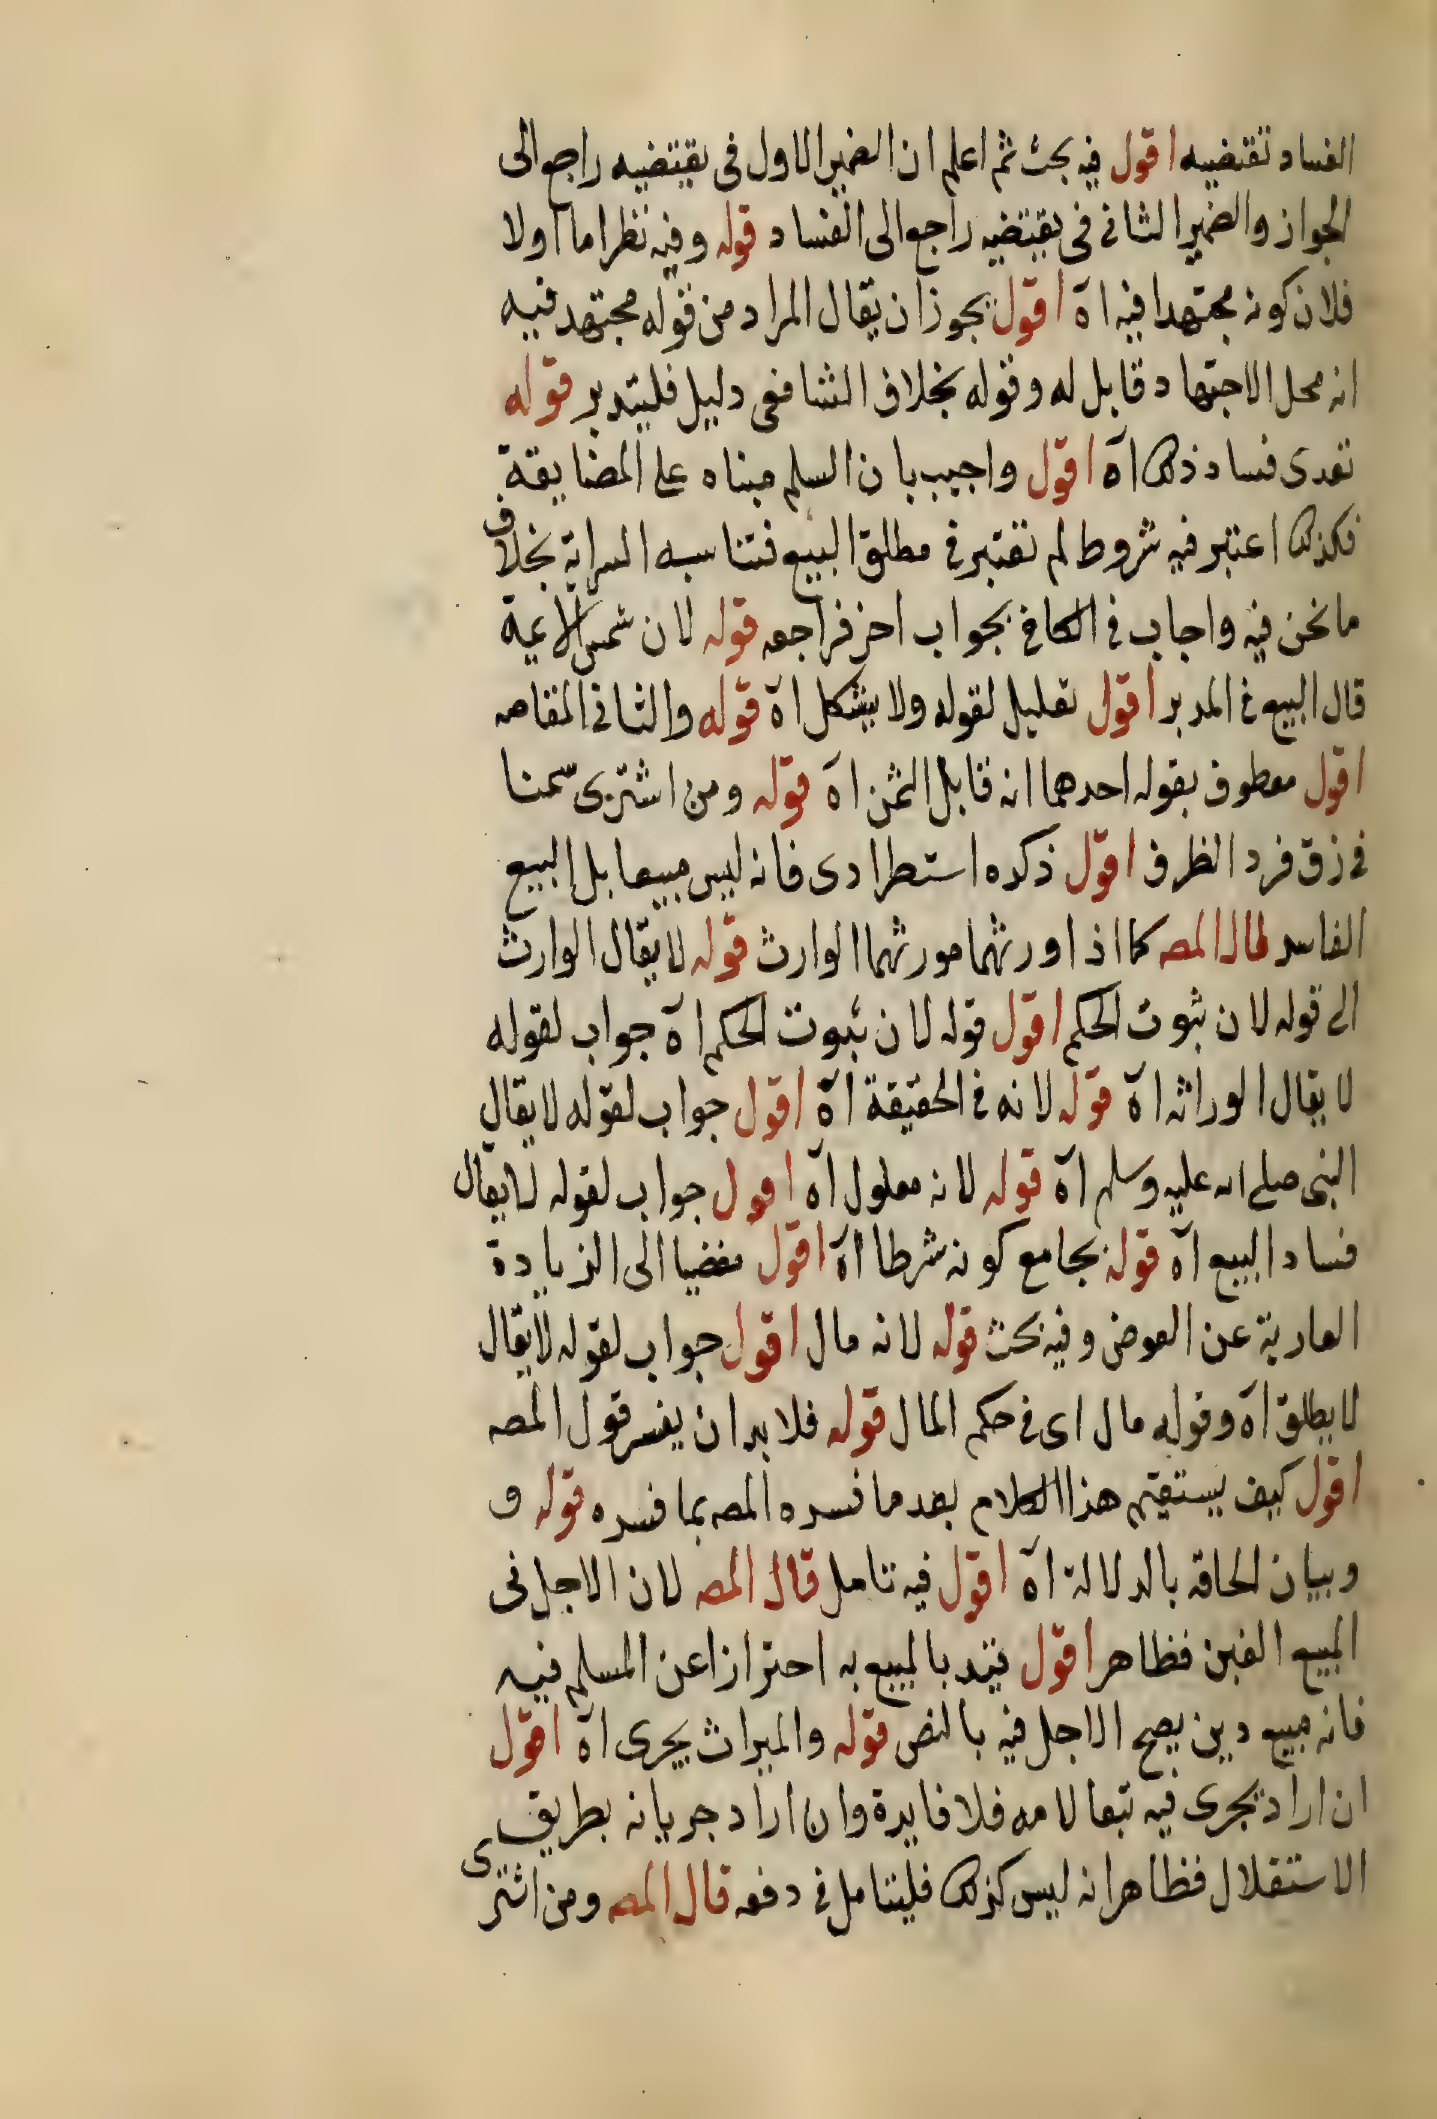 الفساد تقتضيه اقول فيه بحث ثم اعلم ان الضمير الاول فى يقتضيه راجع الى
الجواز والضمير الثانى فى يقتضيه راجع الى الفساد قوله وفيه نظر اما اولا
فلان كونه مجتهدا فيه اه اقول يجوز ان يقال المراد من قوله مجتهد فيه
انه محل الاجتهاد قابل له وقوله بخلاف الشافعى دليل فليتدبر قوله
تعدى فساد ذلك اه اقول واجيب بان السلم مبناه على المضايقة
فكذلك اعتبر فيه شروط لم تعتبر فى مطلق البيع فتناسبه السراية بخلاف
ما نحن فيه واجاب فى الكافى بجواب اخر فراجعه قوله لان شمس الائمة
قال البيع فى المدبر اقول تعليل لقوله ولا يشكل اه قوله والثانى المقاصه
اقول معطوف بقوله احدهما انه قابل الثمن اه قوله ومن اشترى سمنا
فى زق فرد الظرف اقول ذكره استطرادى فانه ليس مبيعا بل البيع
الفاسد قال المصه كما اذا ورثهما مورثهما الوارث قوله لا يقال الوارث
الى قوله لان ثبوت الحكم اقول قوله لان ثبوت الحكم اه جواب لقوله
لا يقال الوراثه اه قوله لانه فى الحقيقة اه اقول جواب لقوله لا يقال
النبى صلى الله عليه وسلم اه قوله لانه معلول اه اقول جواب لقوله لا يقال
فساد البيع اه قوله بجامع كونه شرطا اه اقول مفضيا الى الزيادة
العارية عن العوض وفيه بحث قوله لانه مال اقول جواب لقوله لا يقال
لا يطلق اه وقوله مال اى فى حكم المال قوله فلا بد ان يفسر قول المصه
اقول كيف يستقيم هذا الكلام بعد ما فسره المصه بما فسره قوله و
وبيان الحاقه بالدلالة اه اقول فيه تامل قال المصه لان الاجل فى
المبيع العين فظاهر اقول قيد بالمبيع به احترازا عن المسلم فيه
فانه مبيع دين يصح الاجل فيه بالنص قوله والميراث يجرى اه اقول
ان اراد يجرى فيه تبعا لامه فلا فايدة وان اراد جريانه بطريق
الاستقلال فظاهر انه ليس كذلك فليتامل فى دفعه قال المصه ومن اشترى